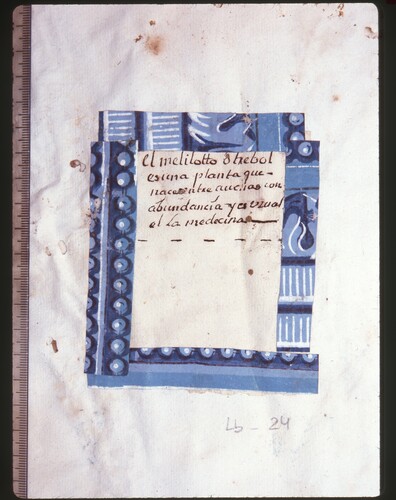 El melilotto ó trebol
es una planta que
nace entre auchas con
abundancia y es usual
el la medecina
Lb - 24